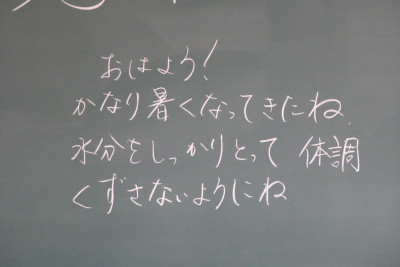 おはよう!
かなり暑くなってきたね
水分をしっかりとって 体調
くずさないようにね